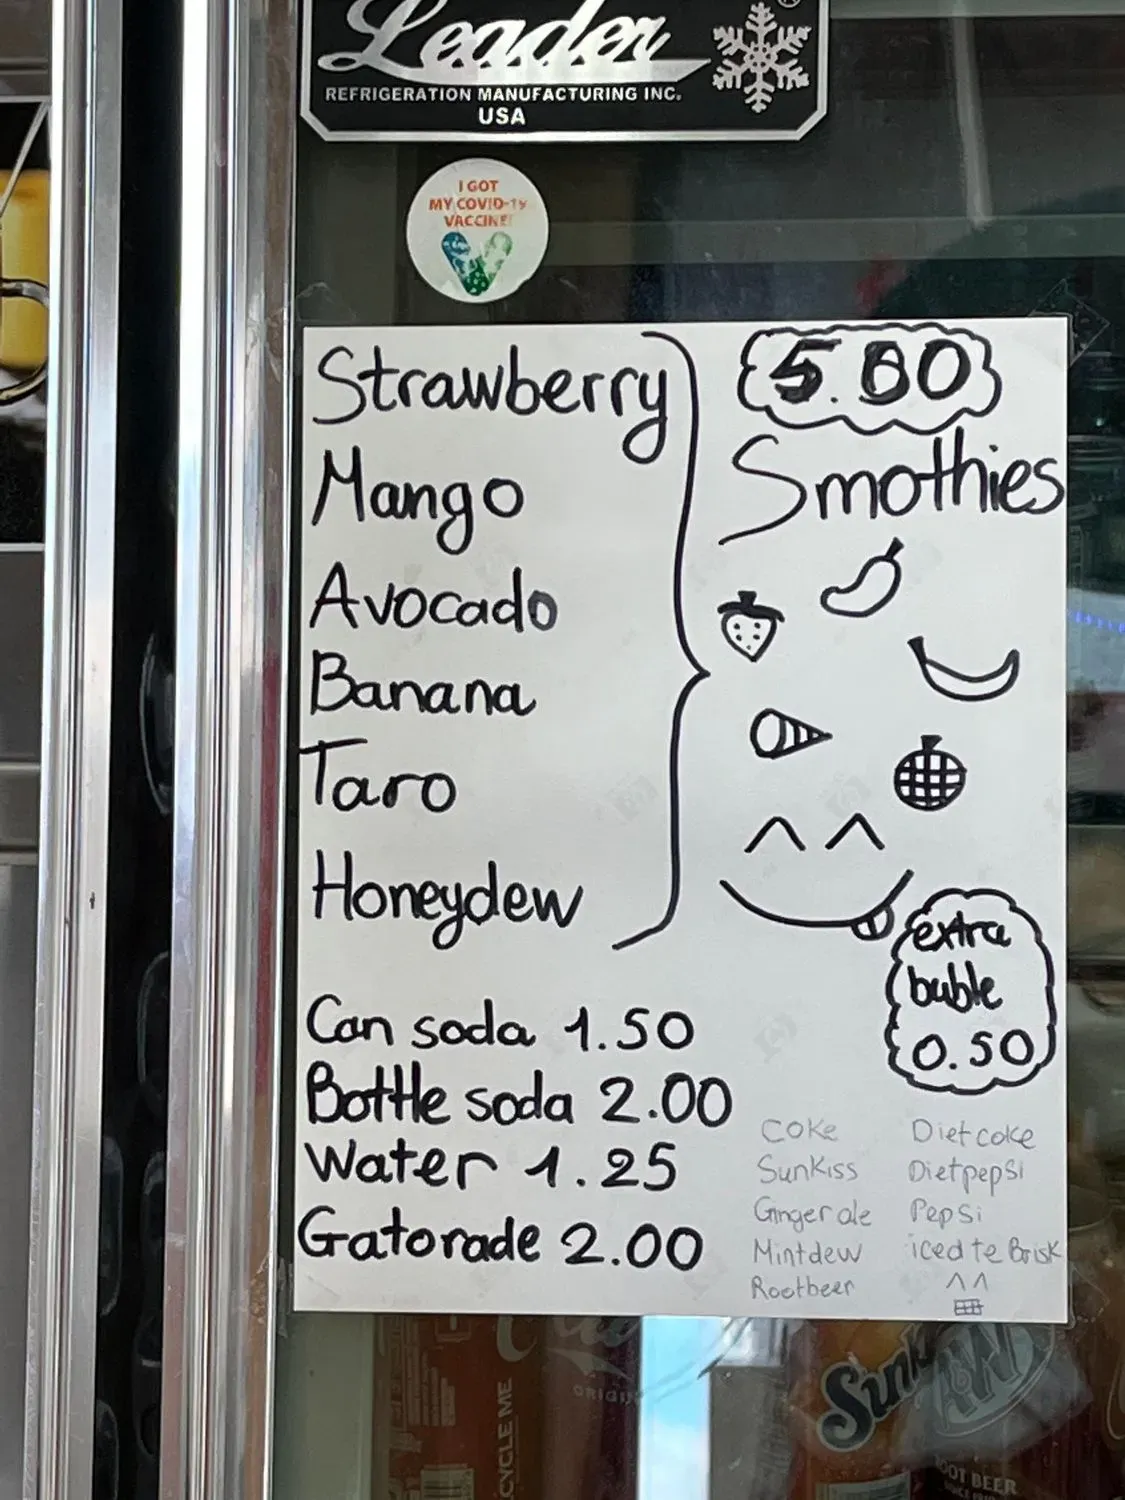 Leader
REFRIGERATION MANUFACTURING INC.
USA
I GOT
MY COVID-19
VACCINE!
Strawberry
Mango
Avocado
Banana
Taro
Honeydew
Smothies
extra
buble
0.50
Can soda 1.50
Bottle soda 2.00
Water 1.25
Gatorade 2.00
Coke
Sunkiss
Ginger ale
Mintdew
Rootbeer
Diet coke
Dietpepsi
Pepsi
iced te Brisk
CYCLE ME
ROOT BEER